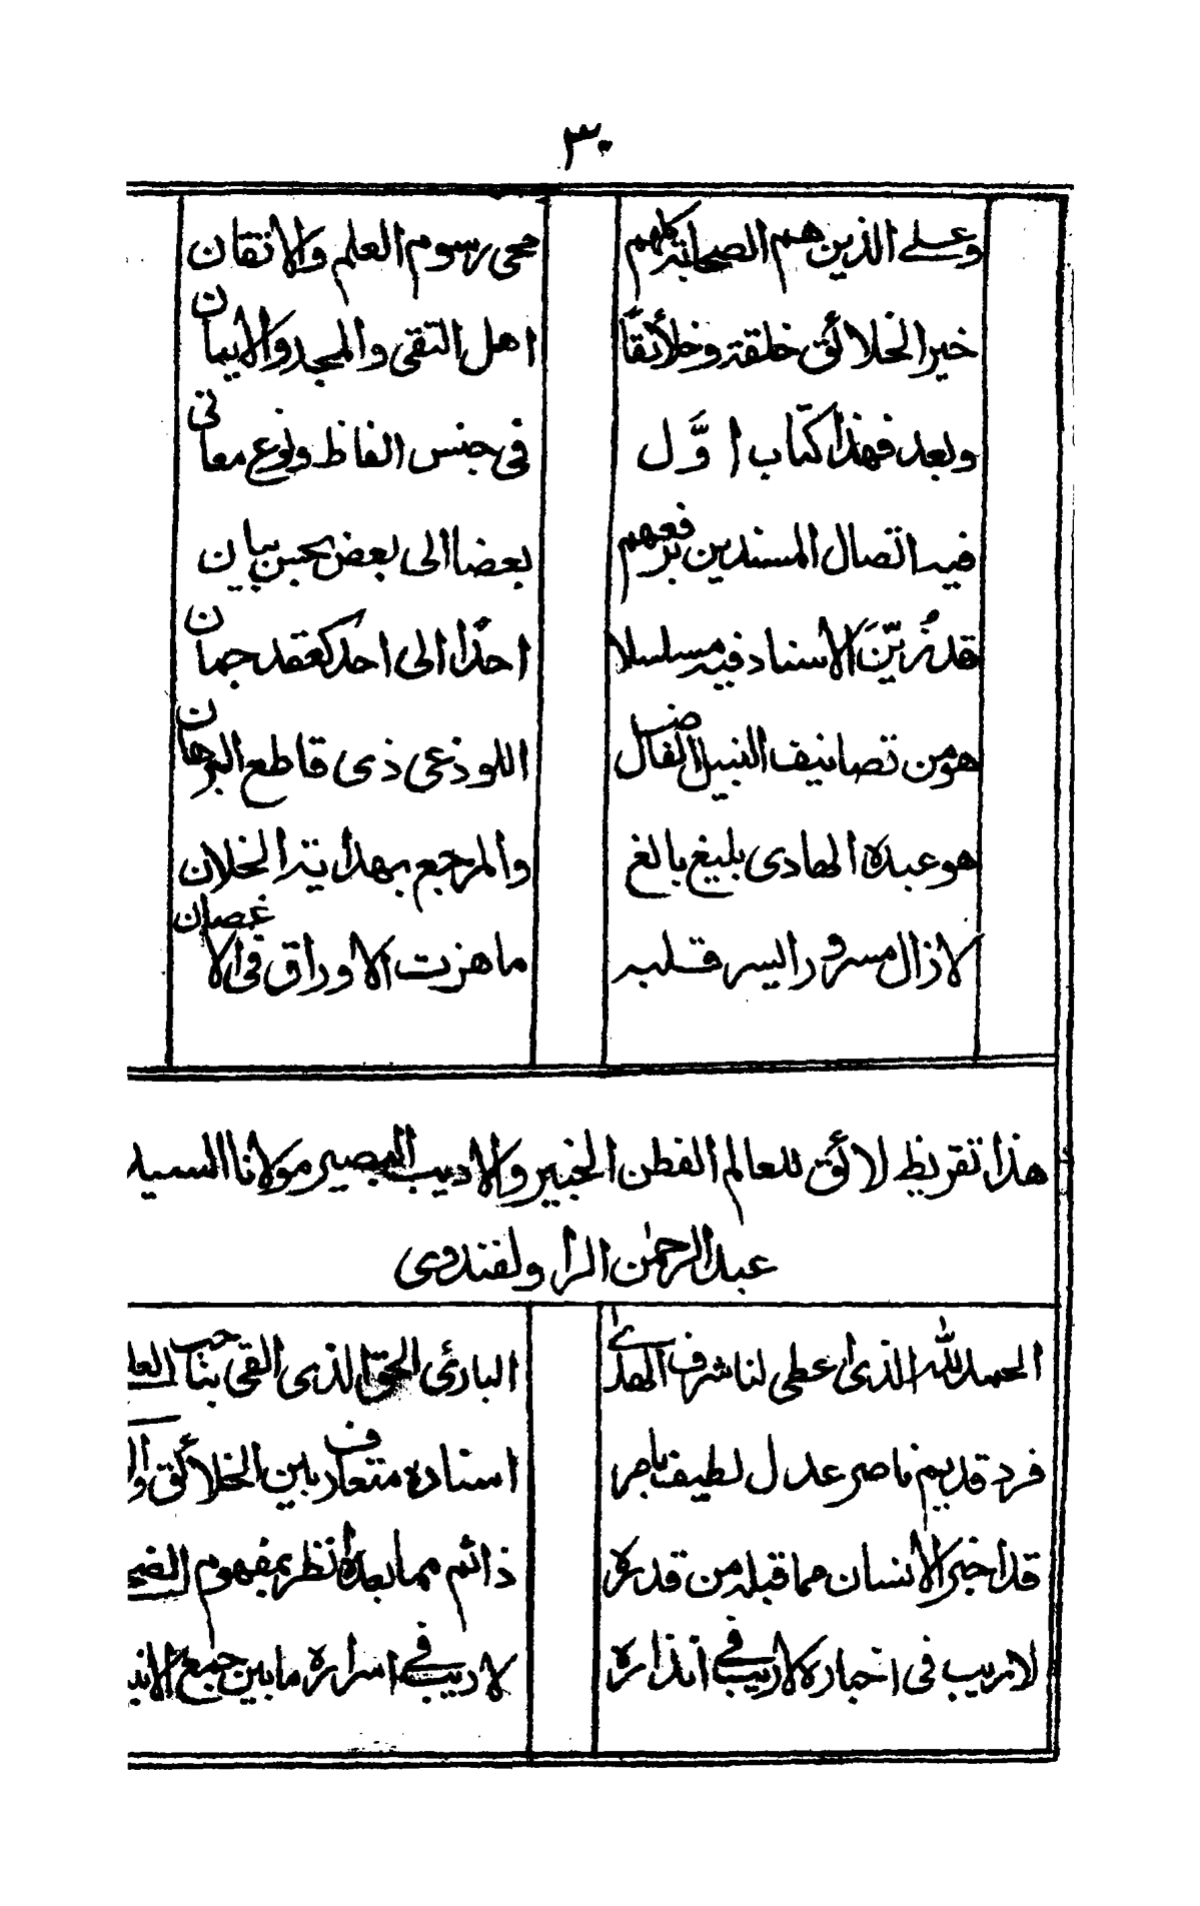 ٣٠
وعلے الذين هم الصحابة كلهم محى رسوم العلم والاتقان
خير الخلائق خلقة وخلائقًا اهل التقى والمجد والايمان
وبعد فهذا كتاب اوَّل فى جنس الفاظ ونوع معانى
فيه اتصال المسندين برفعهم بعضا الى بعض بحسن بيان
قد زُيّنَ الاسناد فيه مسلسلا احدًا الى احد كعقد جمان
هو من تصانيف النبيل الفاضل اللوذعى ذى قاطع البرهان
هو عبده الهادى بليغ بالغ والمرجع بهداية الخلان
لا زال مسرورا ليسر قلبه ما هزت الاوراق فى الاغصان
هذا تقريظ لائق للعالم الفطن الخبير والاديب البصير مولانا السيد
عبد الرحمٰن الراولفندوى
الحمد لله الذى اعطى لنا شرف الهدىٰ البارئ الحق الذى القى بنا حب
فرد قديم ناصر عدل لطيف اسناده متعارف بين الخلائق
قد اخبر الانسان مما قبله من قدره ذائم مما بعده نظر بمفهوم
لا ريب فى اخباره لا ريب فے انذاره لا ريب فے اسراره ما بين جمع